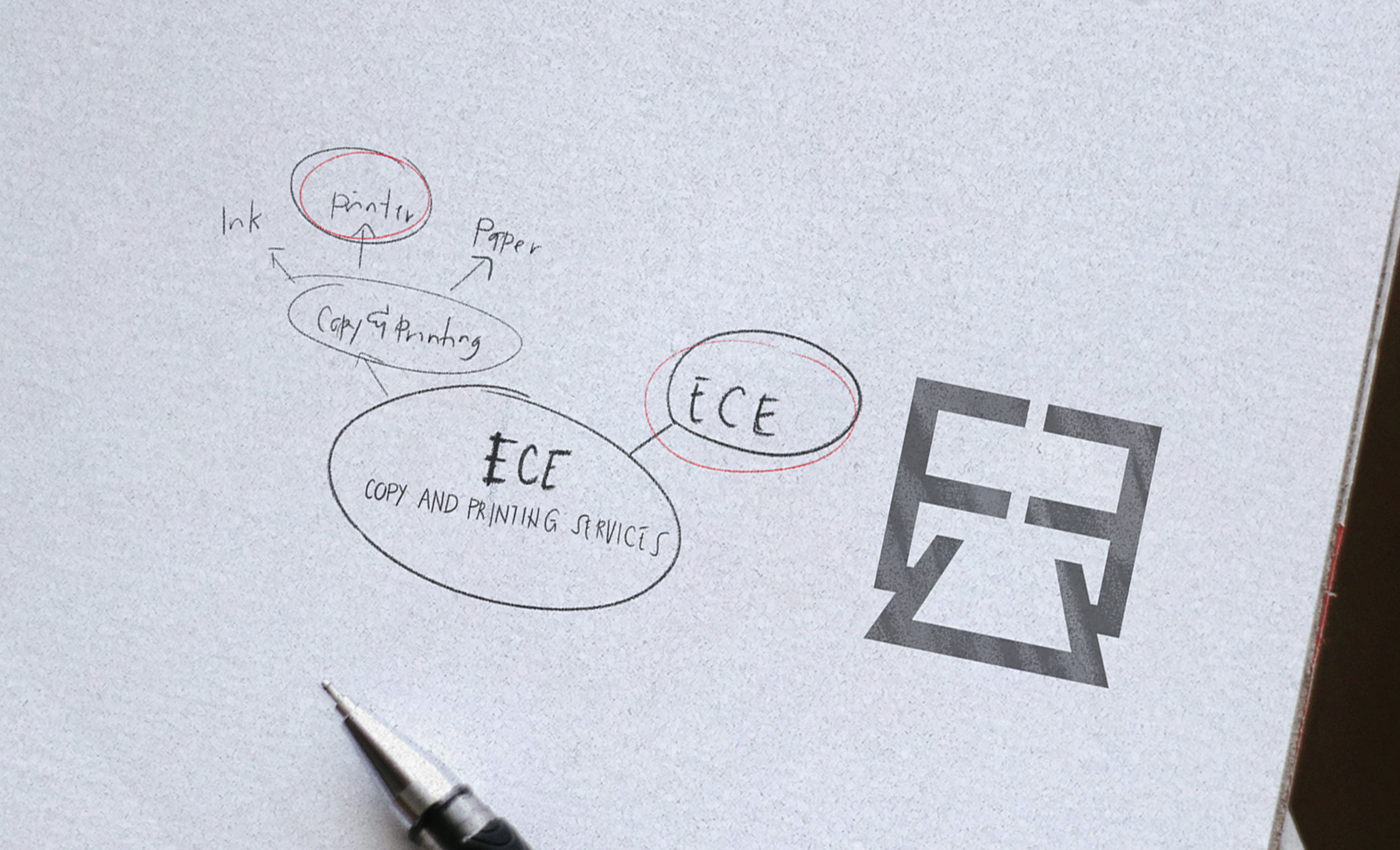 Printer
Ink
Paper
Copy & Printing
ECE
ECE
COPY AND PRINTING SERVICES